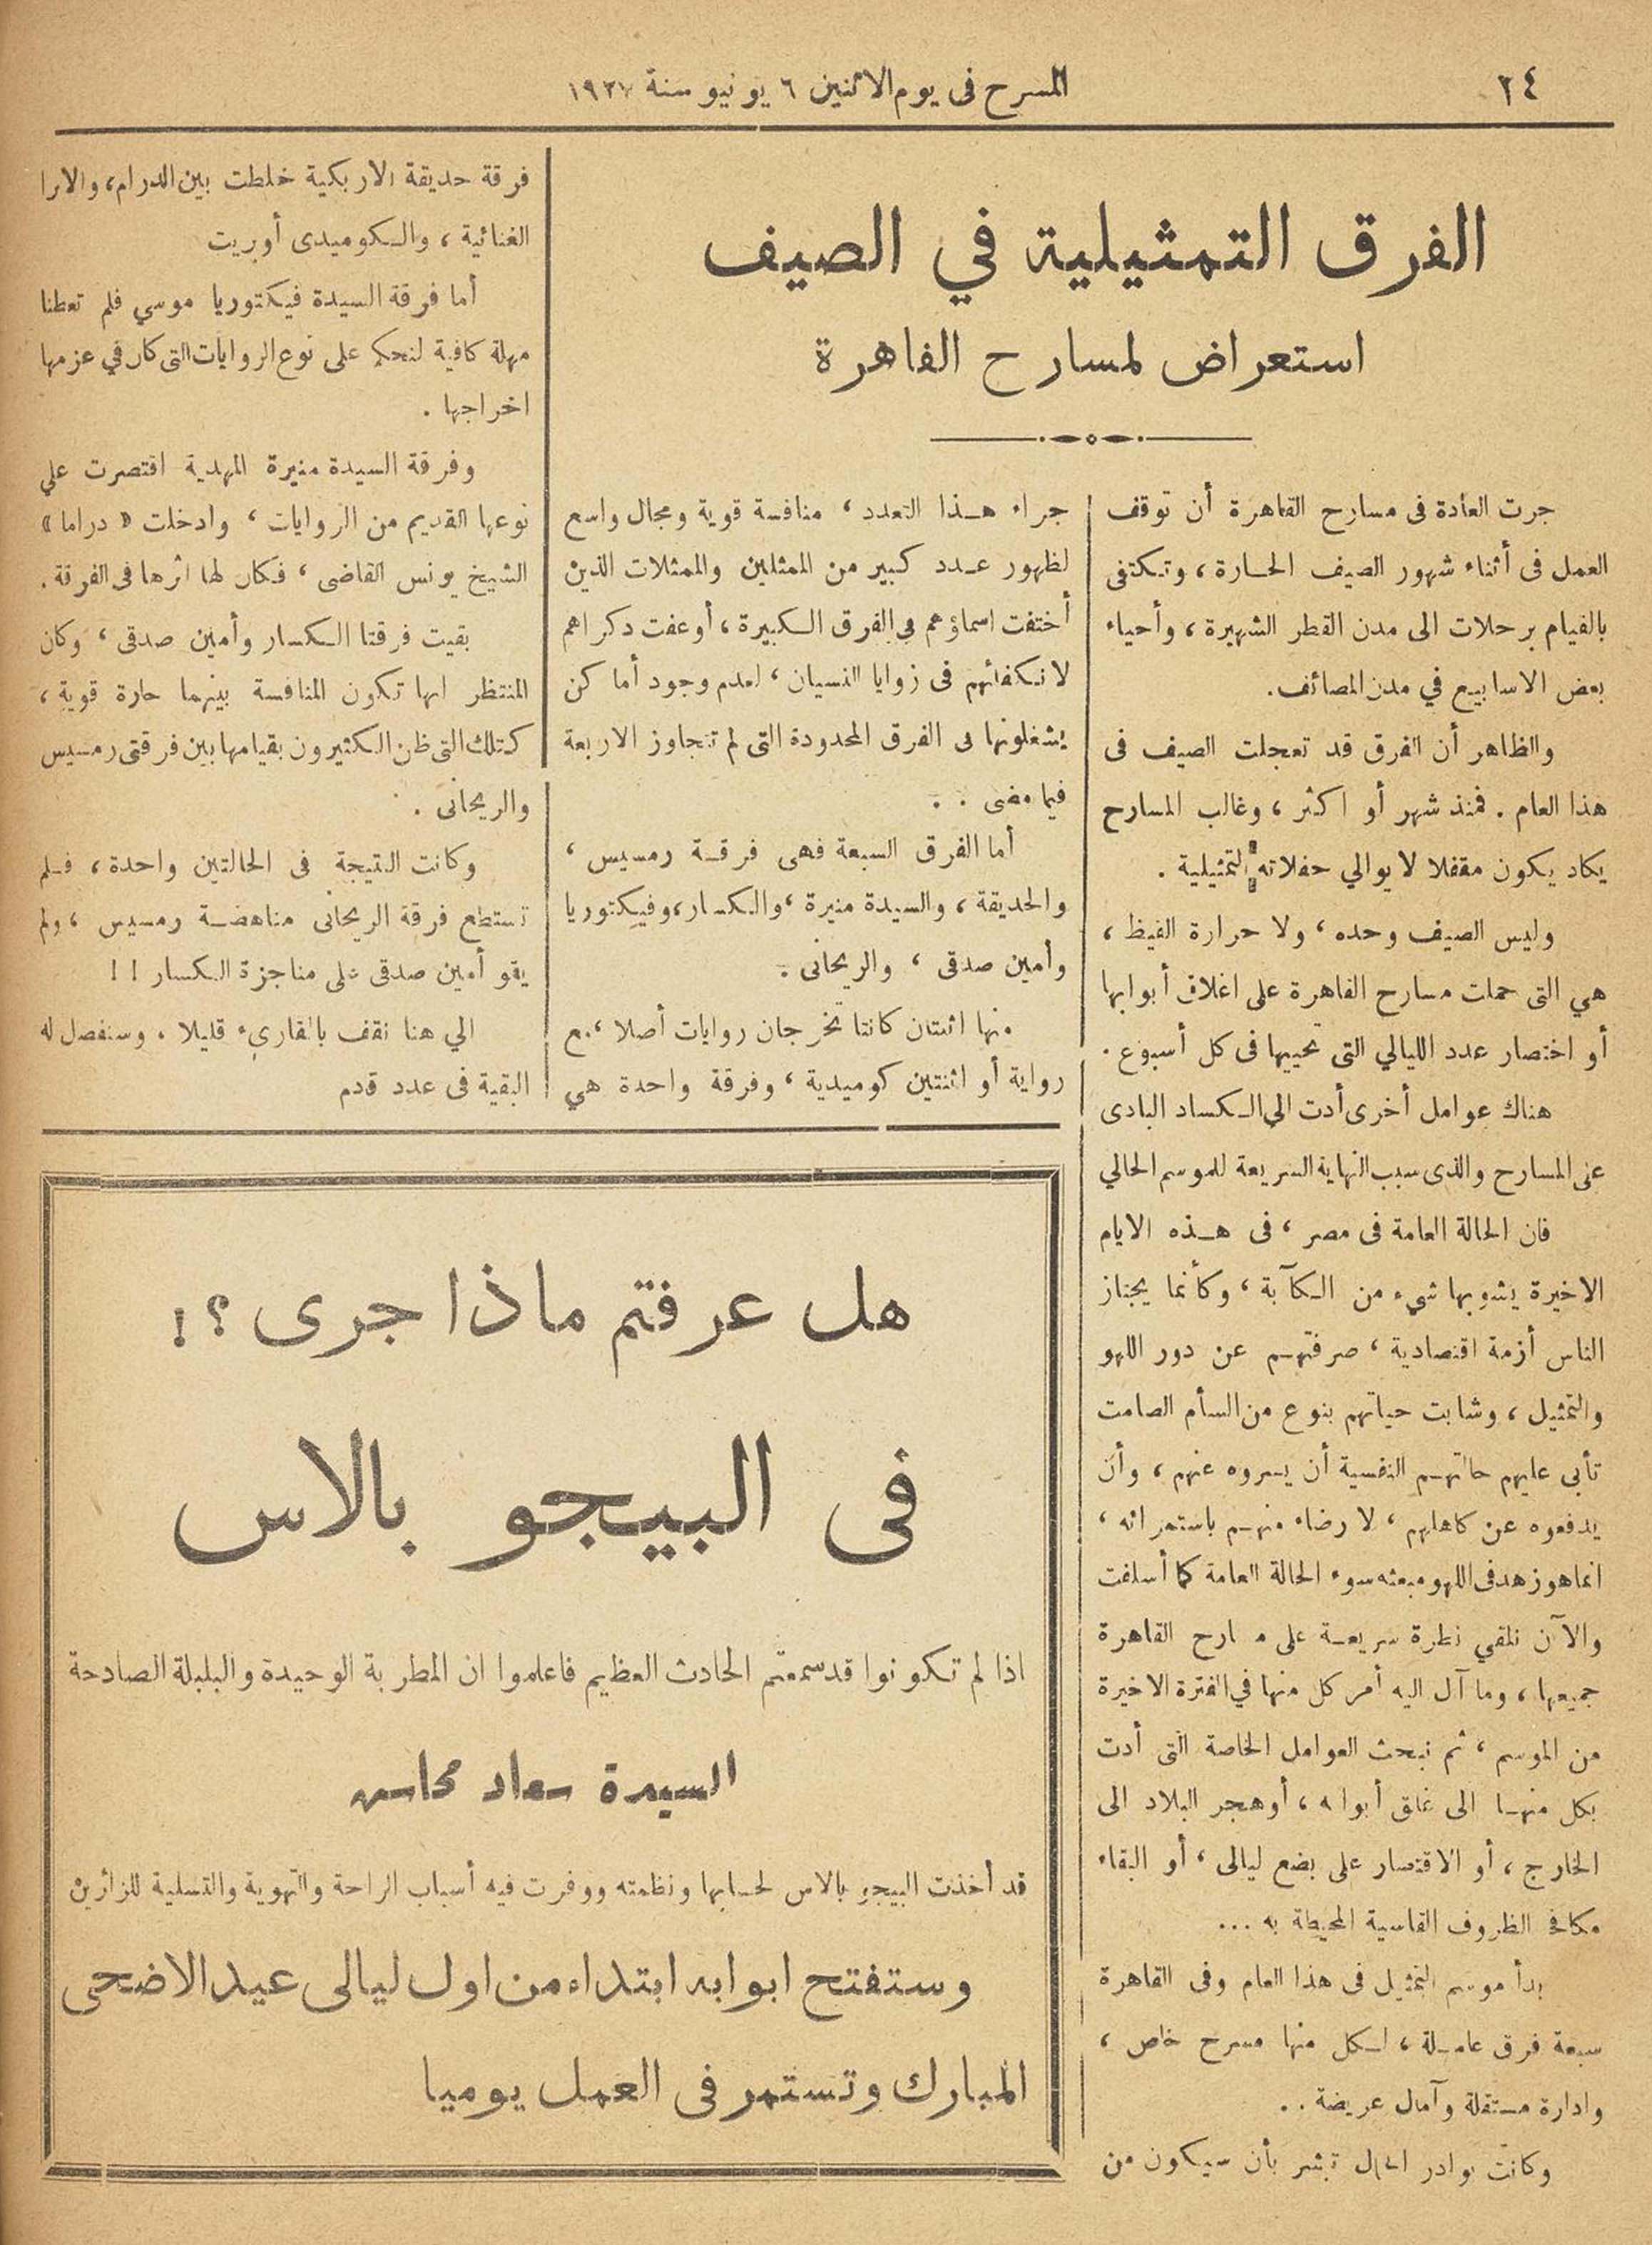 ٢٤
المسرح فى يوم الاثنين ٦ يونيو سنة ١٩٢٧
الفرق التمثيلية في الصيف
استعراض لمسارح القاهرة
جرت العادة فى مسارح القاهرة أن توقف
العمل فى أثناء شهور الصيف الحارة ، وتكتفى
بالقيام برحلات الى مدن القطر الشهيرة ، وأحياء
بعض الاسابيع في مدن المصائف .
والظاهر أن الفرق قد تعجلت الصيف فى
هذا العام . فمنذ شهر أو اكثر ، وغالب المسارح
يكاد يكون مقفلا لا يوالي حفلاته التمثيلية .
وليس الصيف وحده ، ولا حرارة القيظ ،
هي التى حملت مسارح القاهرة على اغلاق أبوابها
أو اختصار عدد الليالي التى تحييها فى كل أسبوع .
هناك عوامل أخرى أدت الي الكساد البادى
على المسارح والذى سبب النهاية السريعة للموسم الحالي
فان الحالة العامة فى مصر ، فى هذه الايام
الاخيرة يشوبها شيء من الكآبة ، وكأنما يجتاز
الناس أزمة اقتصادية ، صرفتهم عن دور اللهو
والتمثيل ، وشابت حياتهم بنوع من السأم الصامت
تأبى عليهم حالتهم النفسية أن يسروه عنهم ، وأن
يدفعوه عن كاهلهم ، لا رضاء منهم باستمرائه ،
انما هو زهد فى اللهو مبعثه سوء الحالة العامة كما أسلفت
والآن نلقي نظرة سريعة على مسارح القاهرة
جميعها ، وما آل اليه أمر كل منها في الفترة الاخيرة
من الموسم ، ثم نبحث العوامل الخاصة التى أدت
بكل منها الى غلق أبوابه ، أو هجر البلاد الى
الخارج ، أو الاقتصار على بضع ليالى ، أو البقاء
مكافح الظروف القاسية المحيطة به ...
بدأ موسم التمثيل فى هذا العام وفى القاهرة
سبعة فرق عاملة ، لكل منها مسرح خاص ،
وادارة مستقلة وآمال عريضة . .
وكانت بوادر الحال تبشر بأن سيكون من
جراء هذا التعدد ، منافسة قوية ومجال واسع
لظهور عدد كبير من الممثلين والممثلات الذين
أختفت اسماؤهم فى الفرق الكبيرة ، أو عفت ذكراهم
لانكفائهم فى زوايا النسيان ، لعدم وجود أماكن
يشغلونها فى الفرق المحدودة التى لم تتجاوز الاربعة
فيما مضى . .
أما الفرق السبعة فهى فرقة رمسيس ،
والحديقة ، والسيدة منيرة ، والكسار ، وفيكتوريا
وأمين صدقى ، والريحانى .
منها اثنتان كانتا تخرجان روايات أصلا ، مع
رواية أو اثنتين كوميدية ، وفرقة واحدة هي
فرقة حديقة الازبكية خلطت بين الدرام ، والابرا
الغنائية ، والكوميدى أوبريت
أما فرقة السيدة فيكتوريا موسي فلم تعطنا
مهلة كافية لنحكم على نوع الروايات التى كان في عزمها
اخراجها .
وفرقة السيدة منيرة المهدية اقتصرت علي
نوعها القديم من الروايات ، وادخلت « دراما »
الشيخ يونس القاضى ، فكان لها اثرها فى الفرقة .
بقيت فرقتا الكسار وأمين صدقى ، وكان
المنتظر انها تكون المنافسة بينهما حارة قوية ،
كتلك التى ظن الكثيرون بقيامها بين فرقتى رمسيس
والريحانى .
وكانت النتيجة فى الحالتين واحدة ، فلم
تستطع فرقة الريحانى مناهضة رمسيس ، ولم
يقو أمين صدقى على مناجزة الكسار ! !
الي هنا نقف بالقارىء قليلا . وسنفصل له
البقية فى عدد قدم
هل عرفتم ماذا جرى ؟ !
فى البيجو بالاس
اذا لم تكونوا قد سمعتم الحادث العظيم فاعلموا ان المطربة الوحيدة والبلبلة الصادحة
السيدة سعاد محاسن
قد أخذت البيجو بالاس لحسابها ونظمته ووفرت فيه أسباب الراحة والتهوية والتسلية للزائرين
وستفتح ابوابه ابتداء من اول ليالى عيد الاضحى
المبارك وتستمر فى العمل يوميا